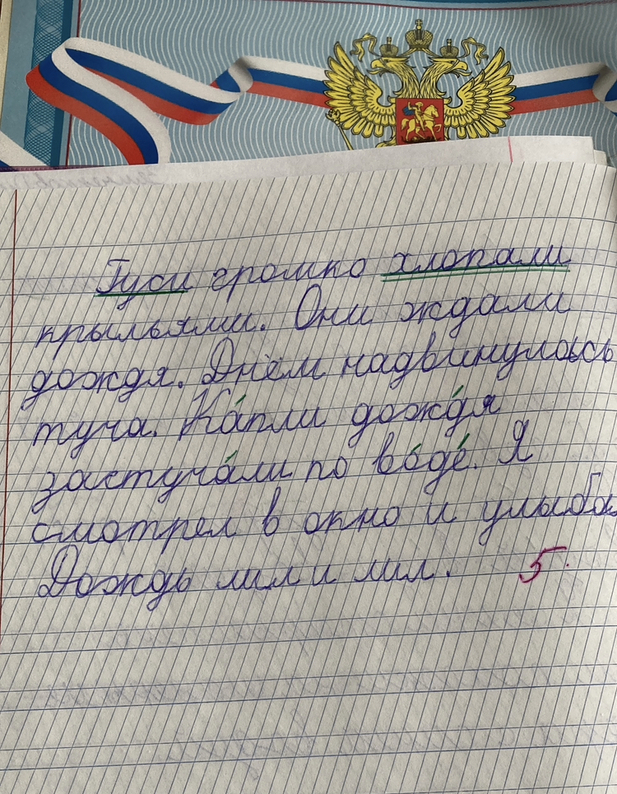 Гуси громко хлопали
крыльями. Они ждали
дождя. Днём надвинулась
туча. Ка́пли дождя́
застуча́ли по во́де́. Я
смотрел в окно и
Дождь лил и лил. 5.